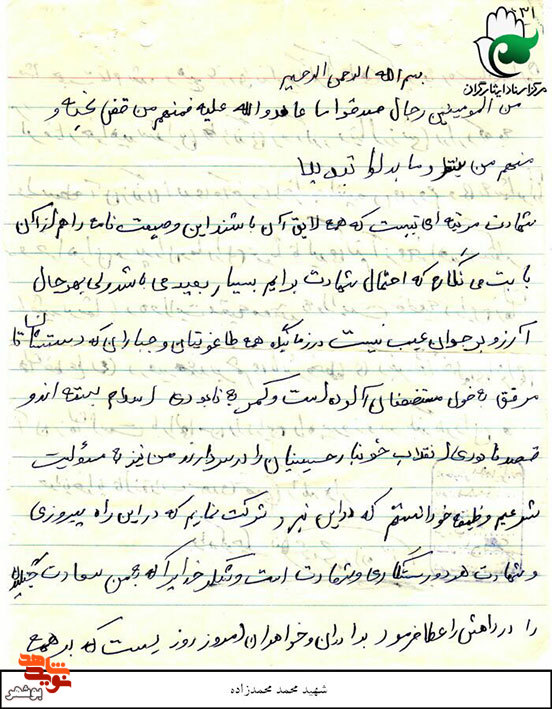 ۳۱
مرکز اسناد ایثارگران
بسم الله الرحمن الرحیم
من المومنین رجال صدقوا ما عاهدوالله علیه فمنهم من قضی نحبه و
منهم من ینتظر و ما بدلوا تبدیلا
شهادت مرتبه ای نیست که همه لایق آن باشند این وصیت نامه را هم از آن
بابت می نگارم که احتمال شهادت برایم بسیار بعید می باشد ولی بهر حال
آرزو بر جوان عیب نیست در زمانیکه همه طاغوتیان و جباران که دستشان تا
مرفق به خون مستضعفان آلوده است و کمر به نابودی اسلام بسته اند و
قصد نابودی انقلاب خونبار حسینیان را در سر دارند من نیز به مسئولیت
شرعیم وظیفه خود دانستم که در این نبرد شرکت نمایم که در این راه پیروزی
و شهادت هر دو رستگاری و سعادت است و شکر خدایرا که به من سعادت جنگیدن
را در راهش اعطا فرمود برادران و خواهران امروز روزیست که بر همه
شاهد
نوید
بوشهر
شهید محمد محمدزاده